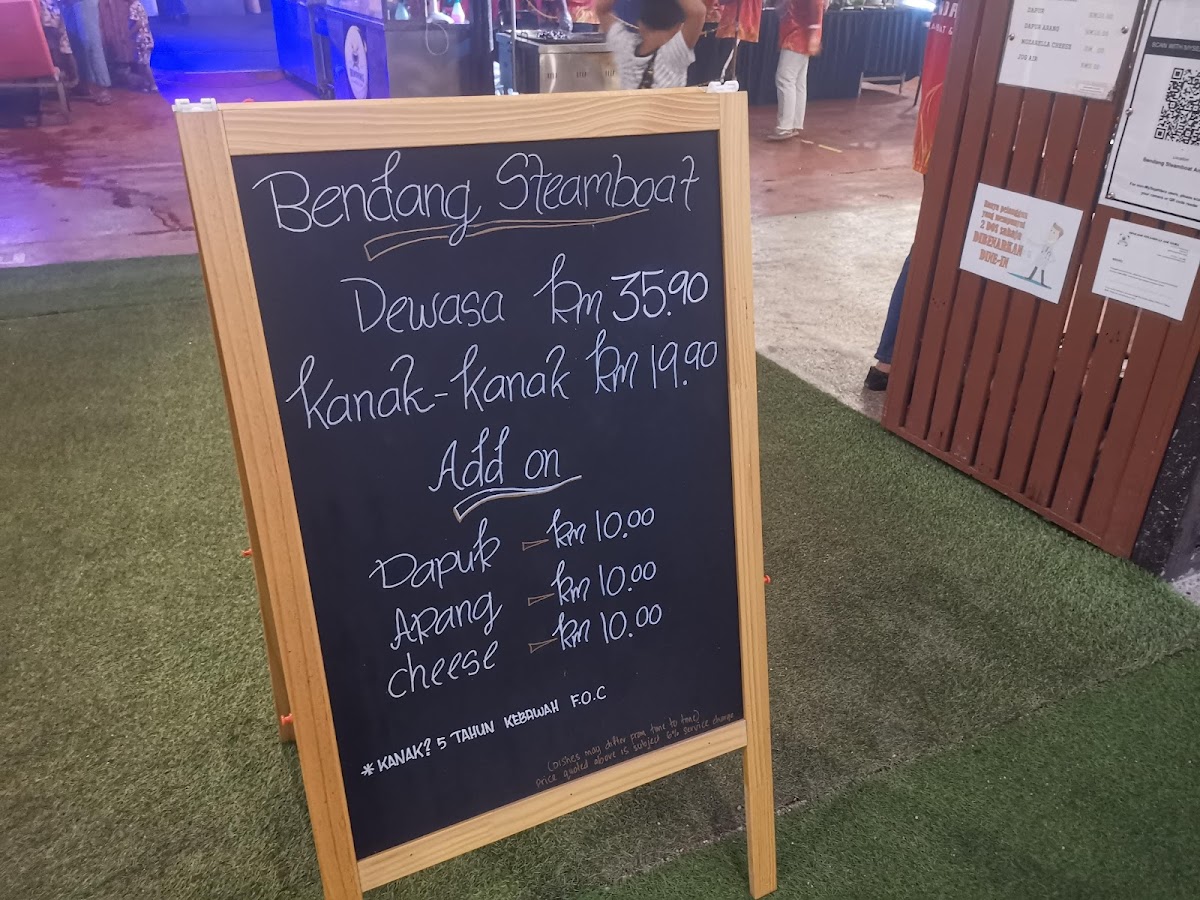 Bendang Steamboat
Dewasa RM 35.90
Kanak-Kanak RM 19.90
Add on
Dapur - RM 10.00
Arang - RM 10.00
cheese - RM 10.00
* KANAK2 5 TAHUN KEBAWAH F.O.C
(Dishes may differ from time to time)
price quoted above is subject 6% service charge
DAPUR
DAPUR ARANG
MOZARELLA CHEESE
JUS AIR
Hanya pelanggan
yang mempunyai
2 DOS sahaja
DIBENARKAN
DINE-IN